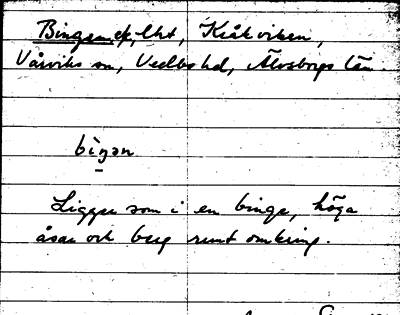 Bingen, Kråkviken,
Vårviks sn, Vedbo hd, Älvsborgs län.
bìŋən
Ligger som i en binge, höga
åsar och berg runt omkring.